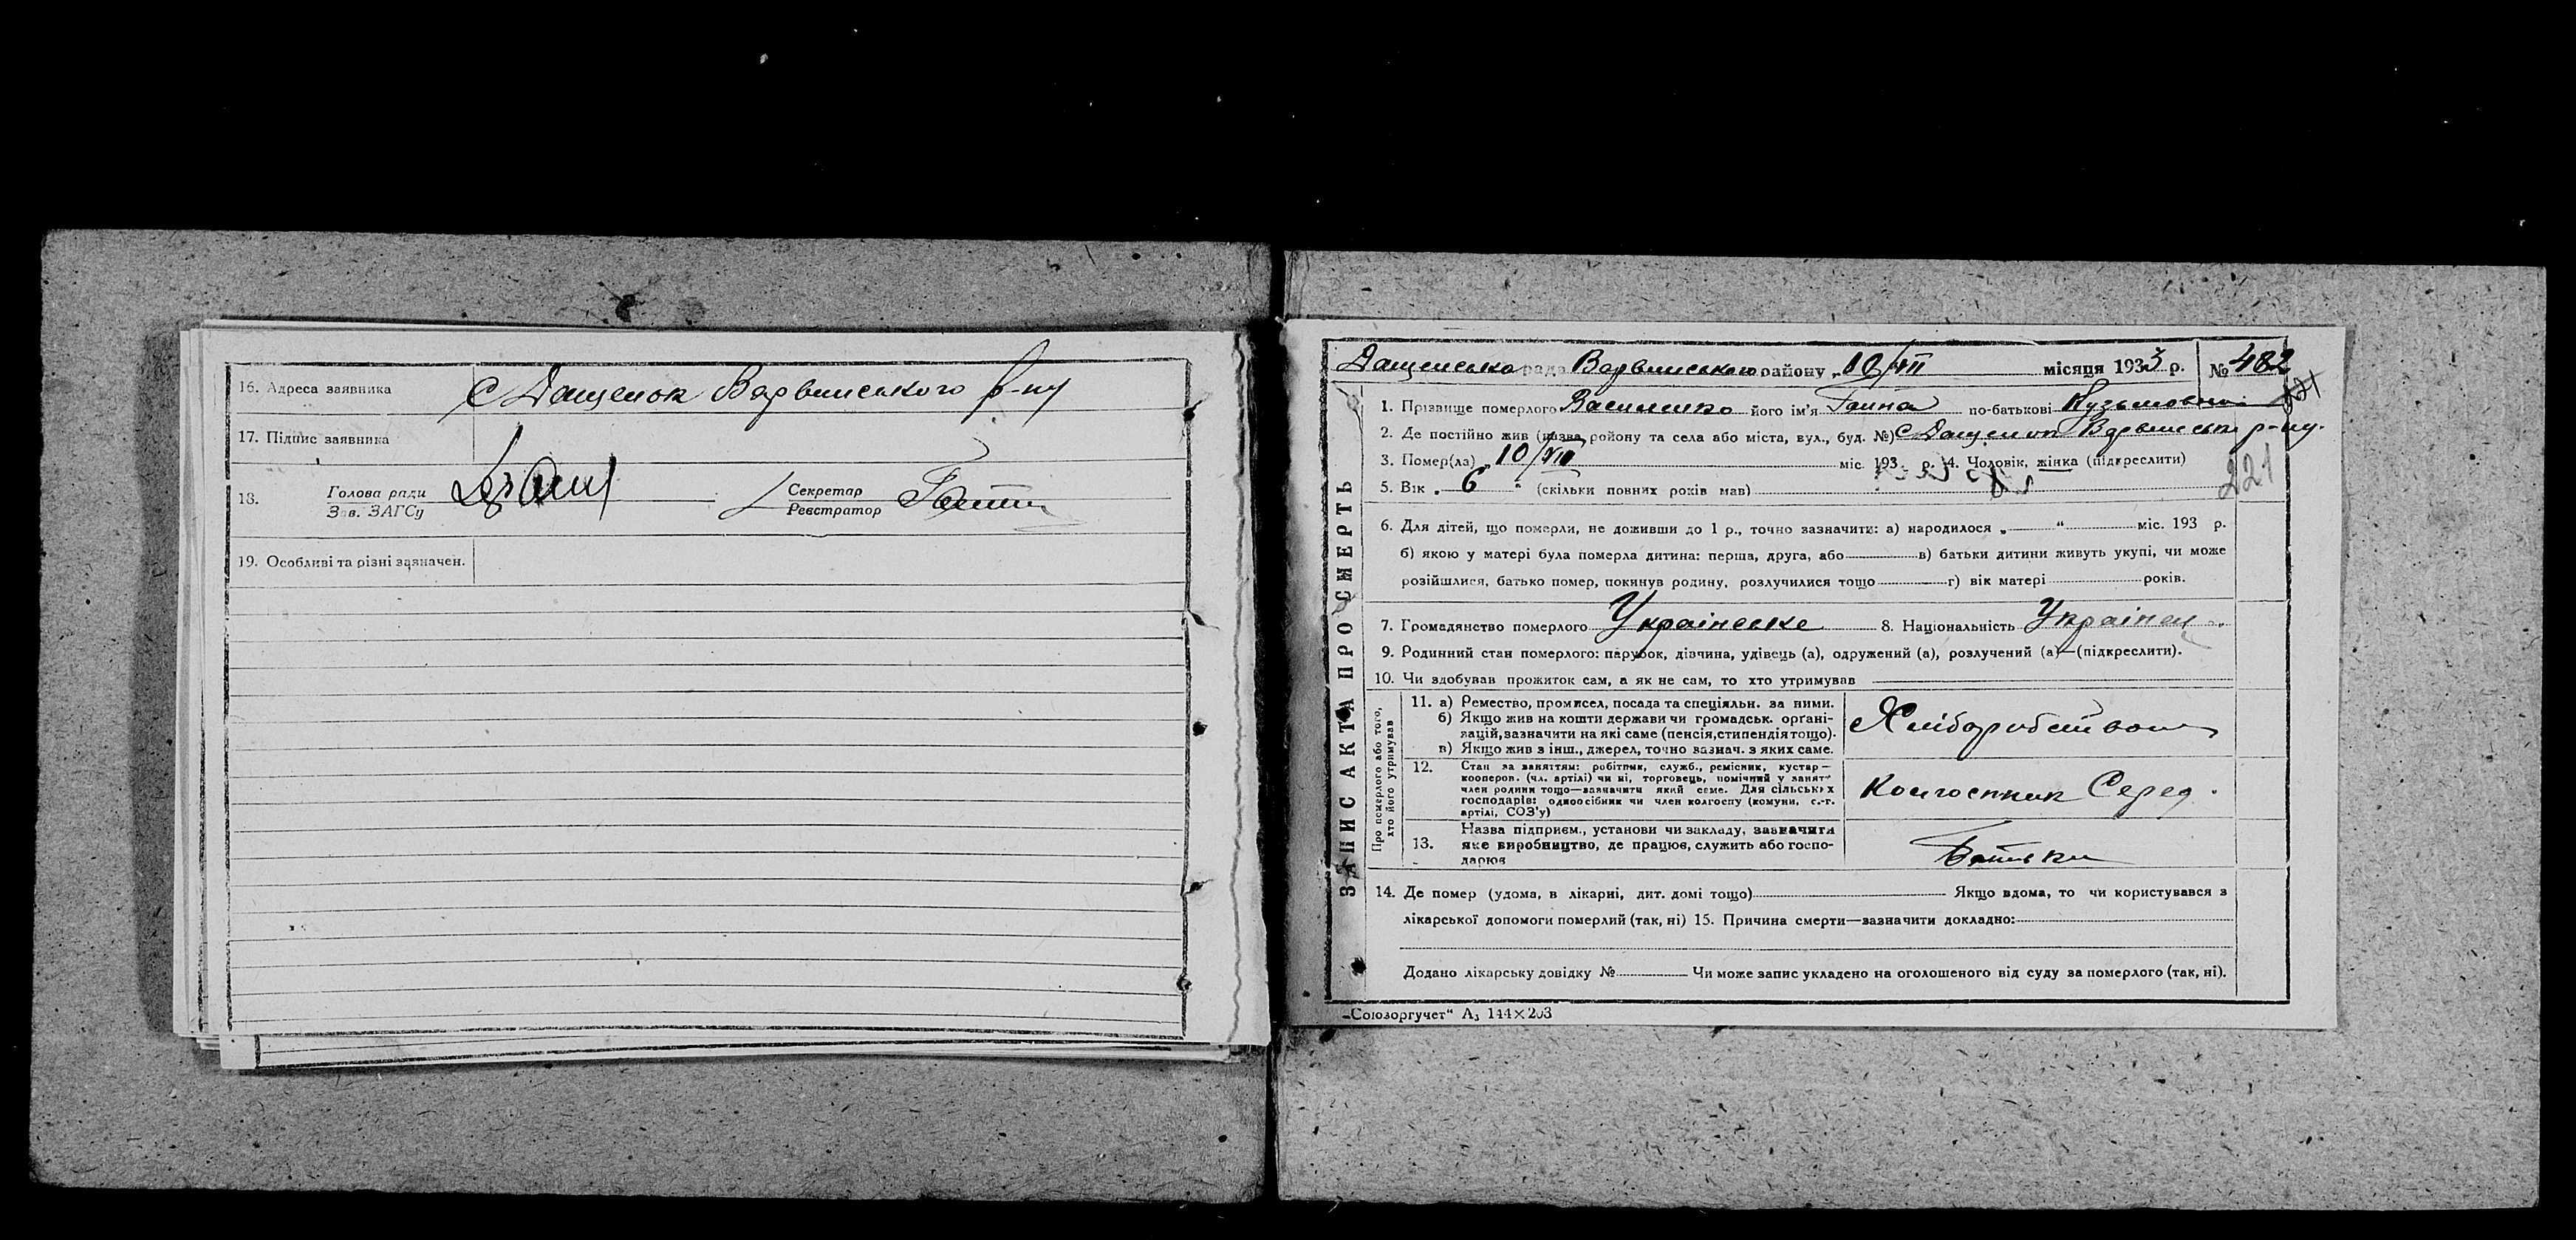 16. Адреса заявника С Дащенок Варвинського р-ну
17. Підпис заявника
18. Голова ради
Зав. ЗАГСу
Секретар
Реєстратор
19. Особливі та різні зазначен.
Дащенська рада Варвинського району „ 10/VII місяця 1933 р. № 482
1. Прізвище померлого Василенко його ім'я Ганна по-батькові Кузьмовна
2. Де постійно жив (назва району та села або міста, вул., буд. №) С Дащенок Варвинськ р-ну.
3. Помер(ла) „ 10/VII міс. 193 р. 4. Чоловік, жінка (підкреслити)
5. Вік „ 6 " (скільки повних років мав)
221
6. Для дітей, що померли, не доживши до 1 р., точно зазначити: а) народилося „ “ міс. 193 р.
б) якою у матері була померла дитина: перша, друга, або в) батьки дитини живуть укупі, чи може
розійшлися, батько помер, покинув родину, розлучилися тощо г) вік матері років.
7. Громадянство померлого Українське 8. Національність Українец
9. Родинний стан померлого: парубок, дівчина, удівець (а), одружений (а), розлучений (а)—(підкреслити).
10. Чи здобував прожиток сам, а як не сам, то хто утримував
ЗАПИС АКТА ПРО СМЕРТЬ
Про померлого або того,
хто його утримував
11. а) Ремество, промисел, посада та спеціяльн. за ними.
б) Якщо жив на кошти держави чи громадськ. органі-
зацій, зазначити на які саме (пенсія, стипендія тощо).
в) Якщо жив з інш., джерел, точно зазнач. з яких саме.
Хліборобством
12. Стан за заняттям: робітник, служб., ремісник, кустар—
кооперов. (чл. артілі) чи ні, торговець, помічний у занят—
член родини тощо—зазначити який саме. Для сільських
господарів: одноосібник чи член колгоспу (комуни, с.-г.
артілі, СОЗ'у)
Колгоспник Серед.
13. Назва підприєм., установи чи закладу, зазначити
яке виробництво, де працює, служить або госпо-
дарює
Батьки
14. Де помер (удома, в лікарні, дит. домі тощо) Якщо вдома, то чи користувався з
лікарської допомоги померлий (так, ні) 15. Причина смерти—зазначити докладно:
Додано лікарську довідку № Чи може запис укладено на оголошеного від суду за померлого (так, ні).
„Союзоргучет“ А₅ 144×203